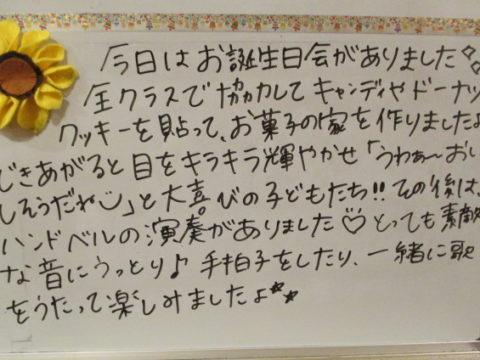 今日はお誕生日会がありました✧
全クラスで協力してキャンディやドーナツ
クッキーを貼って、お菓子の家を作りましたよ
できあがると目をキラキラ輝やかせ「うわぁ〜おい
しそうだね」と大喜びの子どもたち!!その後は、
ハンドベルの演奏がありました♡とっても素敵
な音にうっとり♪手拍子をしたり、一緒に歌
をうたって楽しみましたよ☆